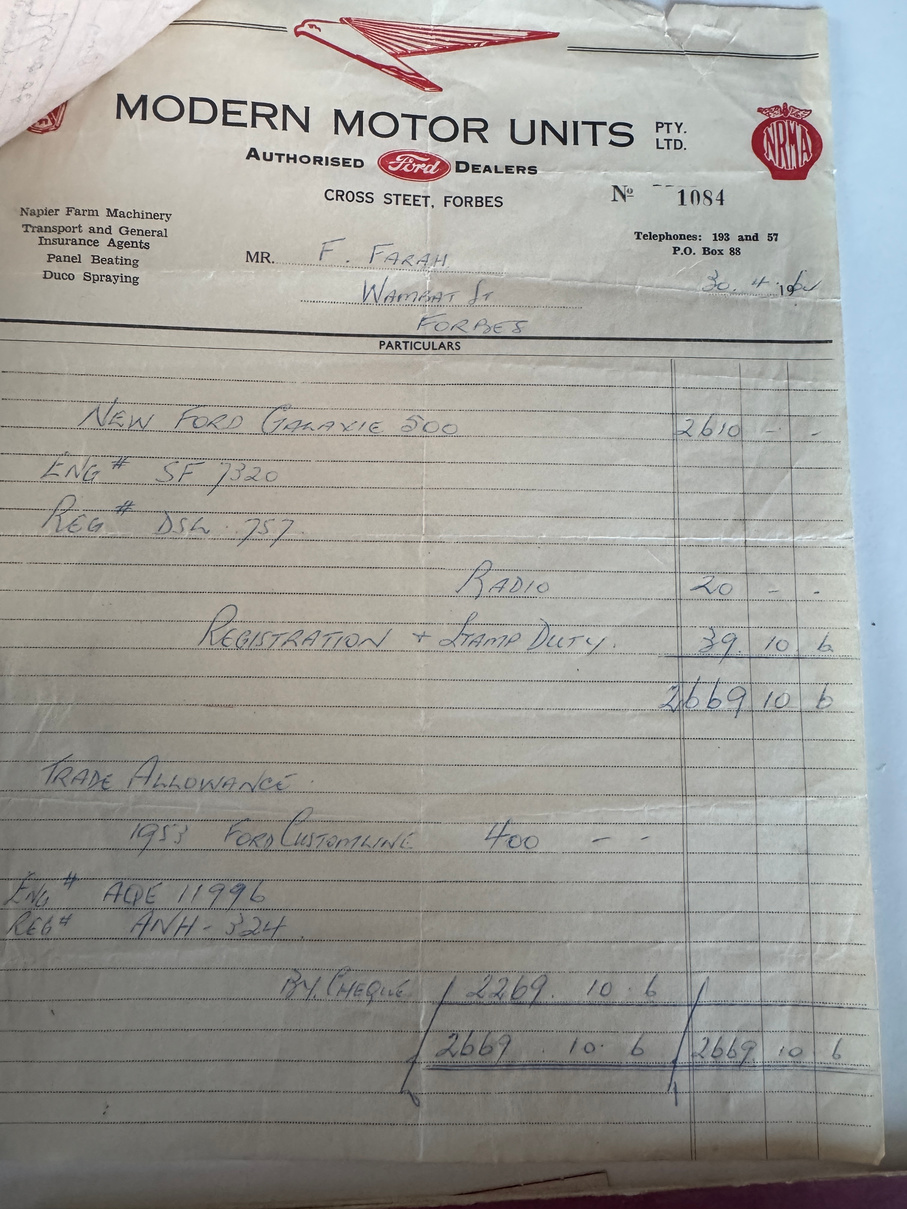 MODERN MOTOR UNITS PTY. LTD.
AUTHORISED Ford DEALERS
NRMA
CROSS STEET, FORBES
Nº 1084
Napier Farm Machinery
Transport and General
Insurance Agents
Panel Beating
Duco Spraying
Telephones: 193 and 57
P.O. Box 88
MR. F. FARAH
30. 4. 19
WAMBAT St
FORBES
PARTICULARS
NEW FORD GALAXIE 500 2610 - -
ENG # SF 7320
REG # 757.
RADIO 20 - -
REGISTRATION + STAMP DUTY. 39. 10. 6
2669 10 6
TRADE ALLOWANCE.
1953 FORD CUSTOMLINE 400 - -
ENG # 11996
REG # ANH-324
BY. CHEQUE 2269. 10. 6
2669. 10. 6 2669 10 6